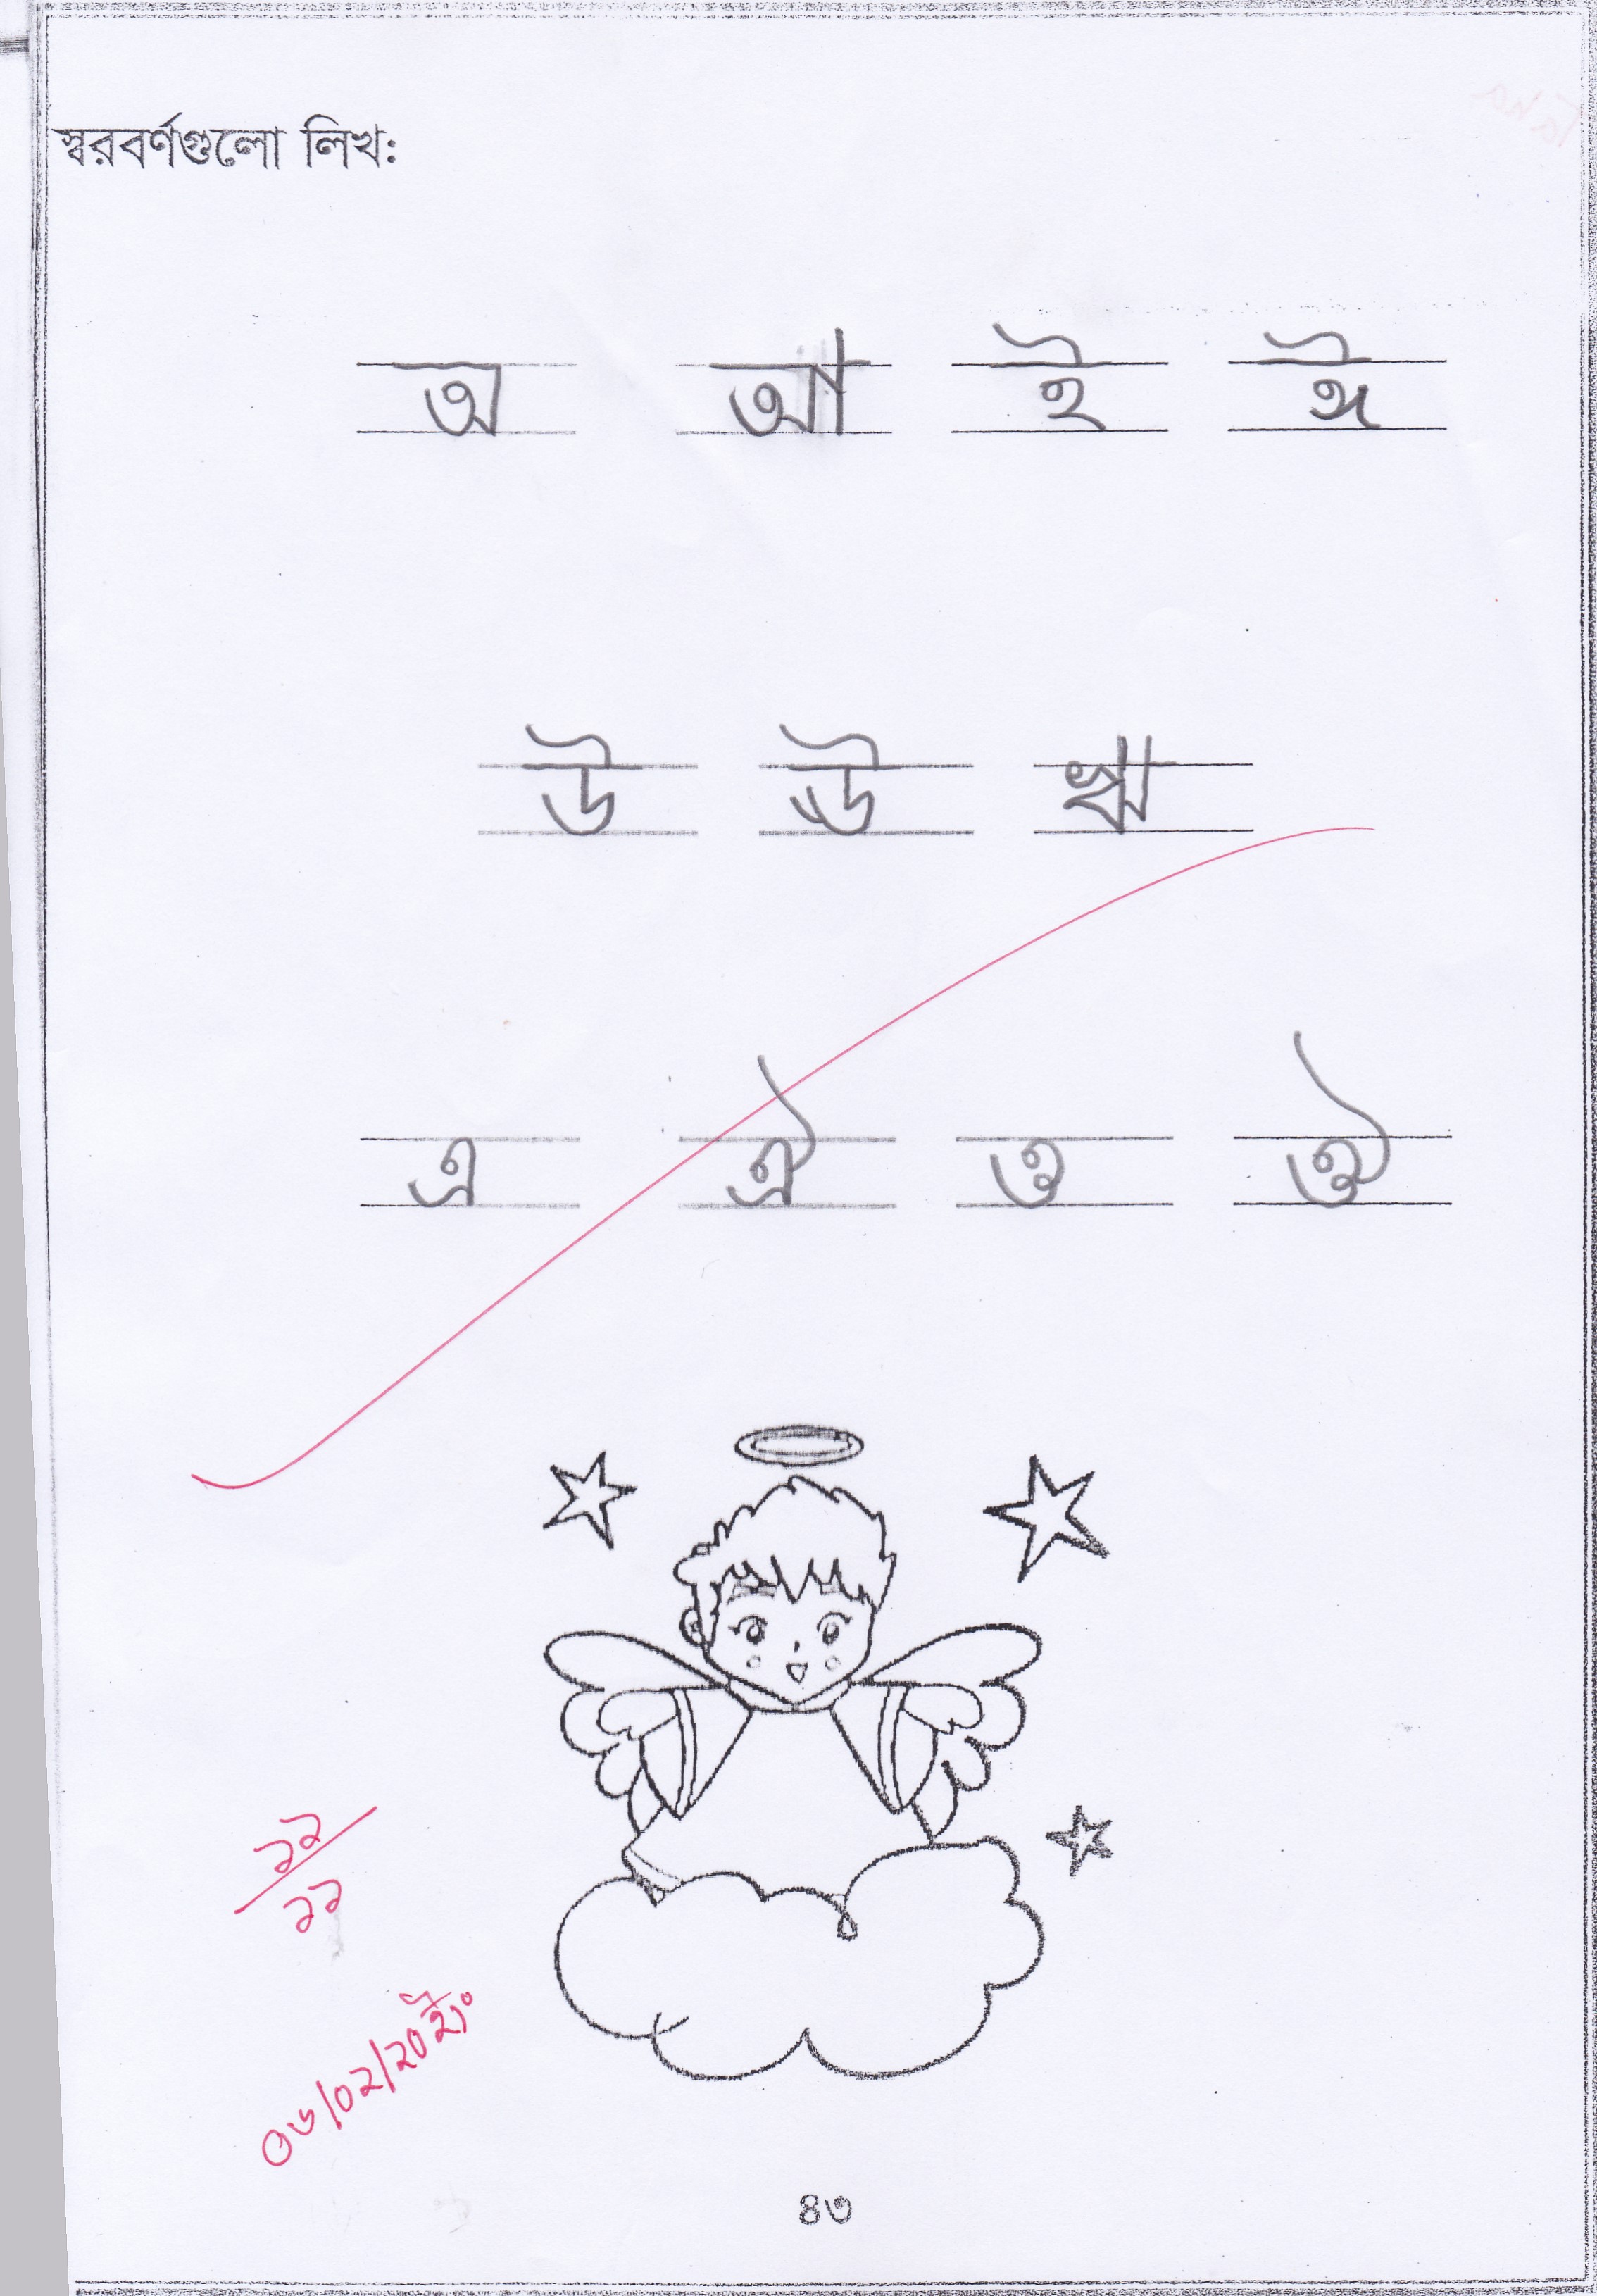 স্বরবর্ণগুলো লিখ:
অ আ ই ঈ
উ ঊ ঋ
এ ঐ ও ঔ
১১
১১
০৬/০২/২০
৪৩